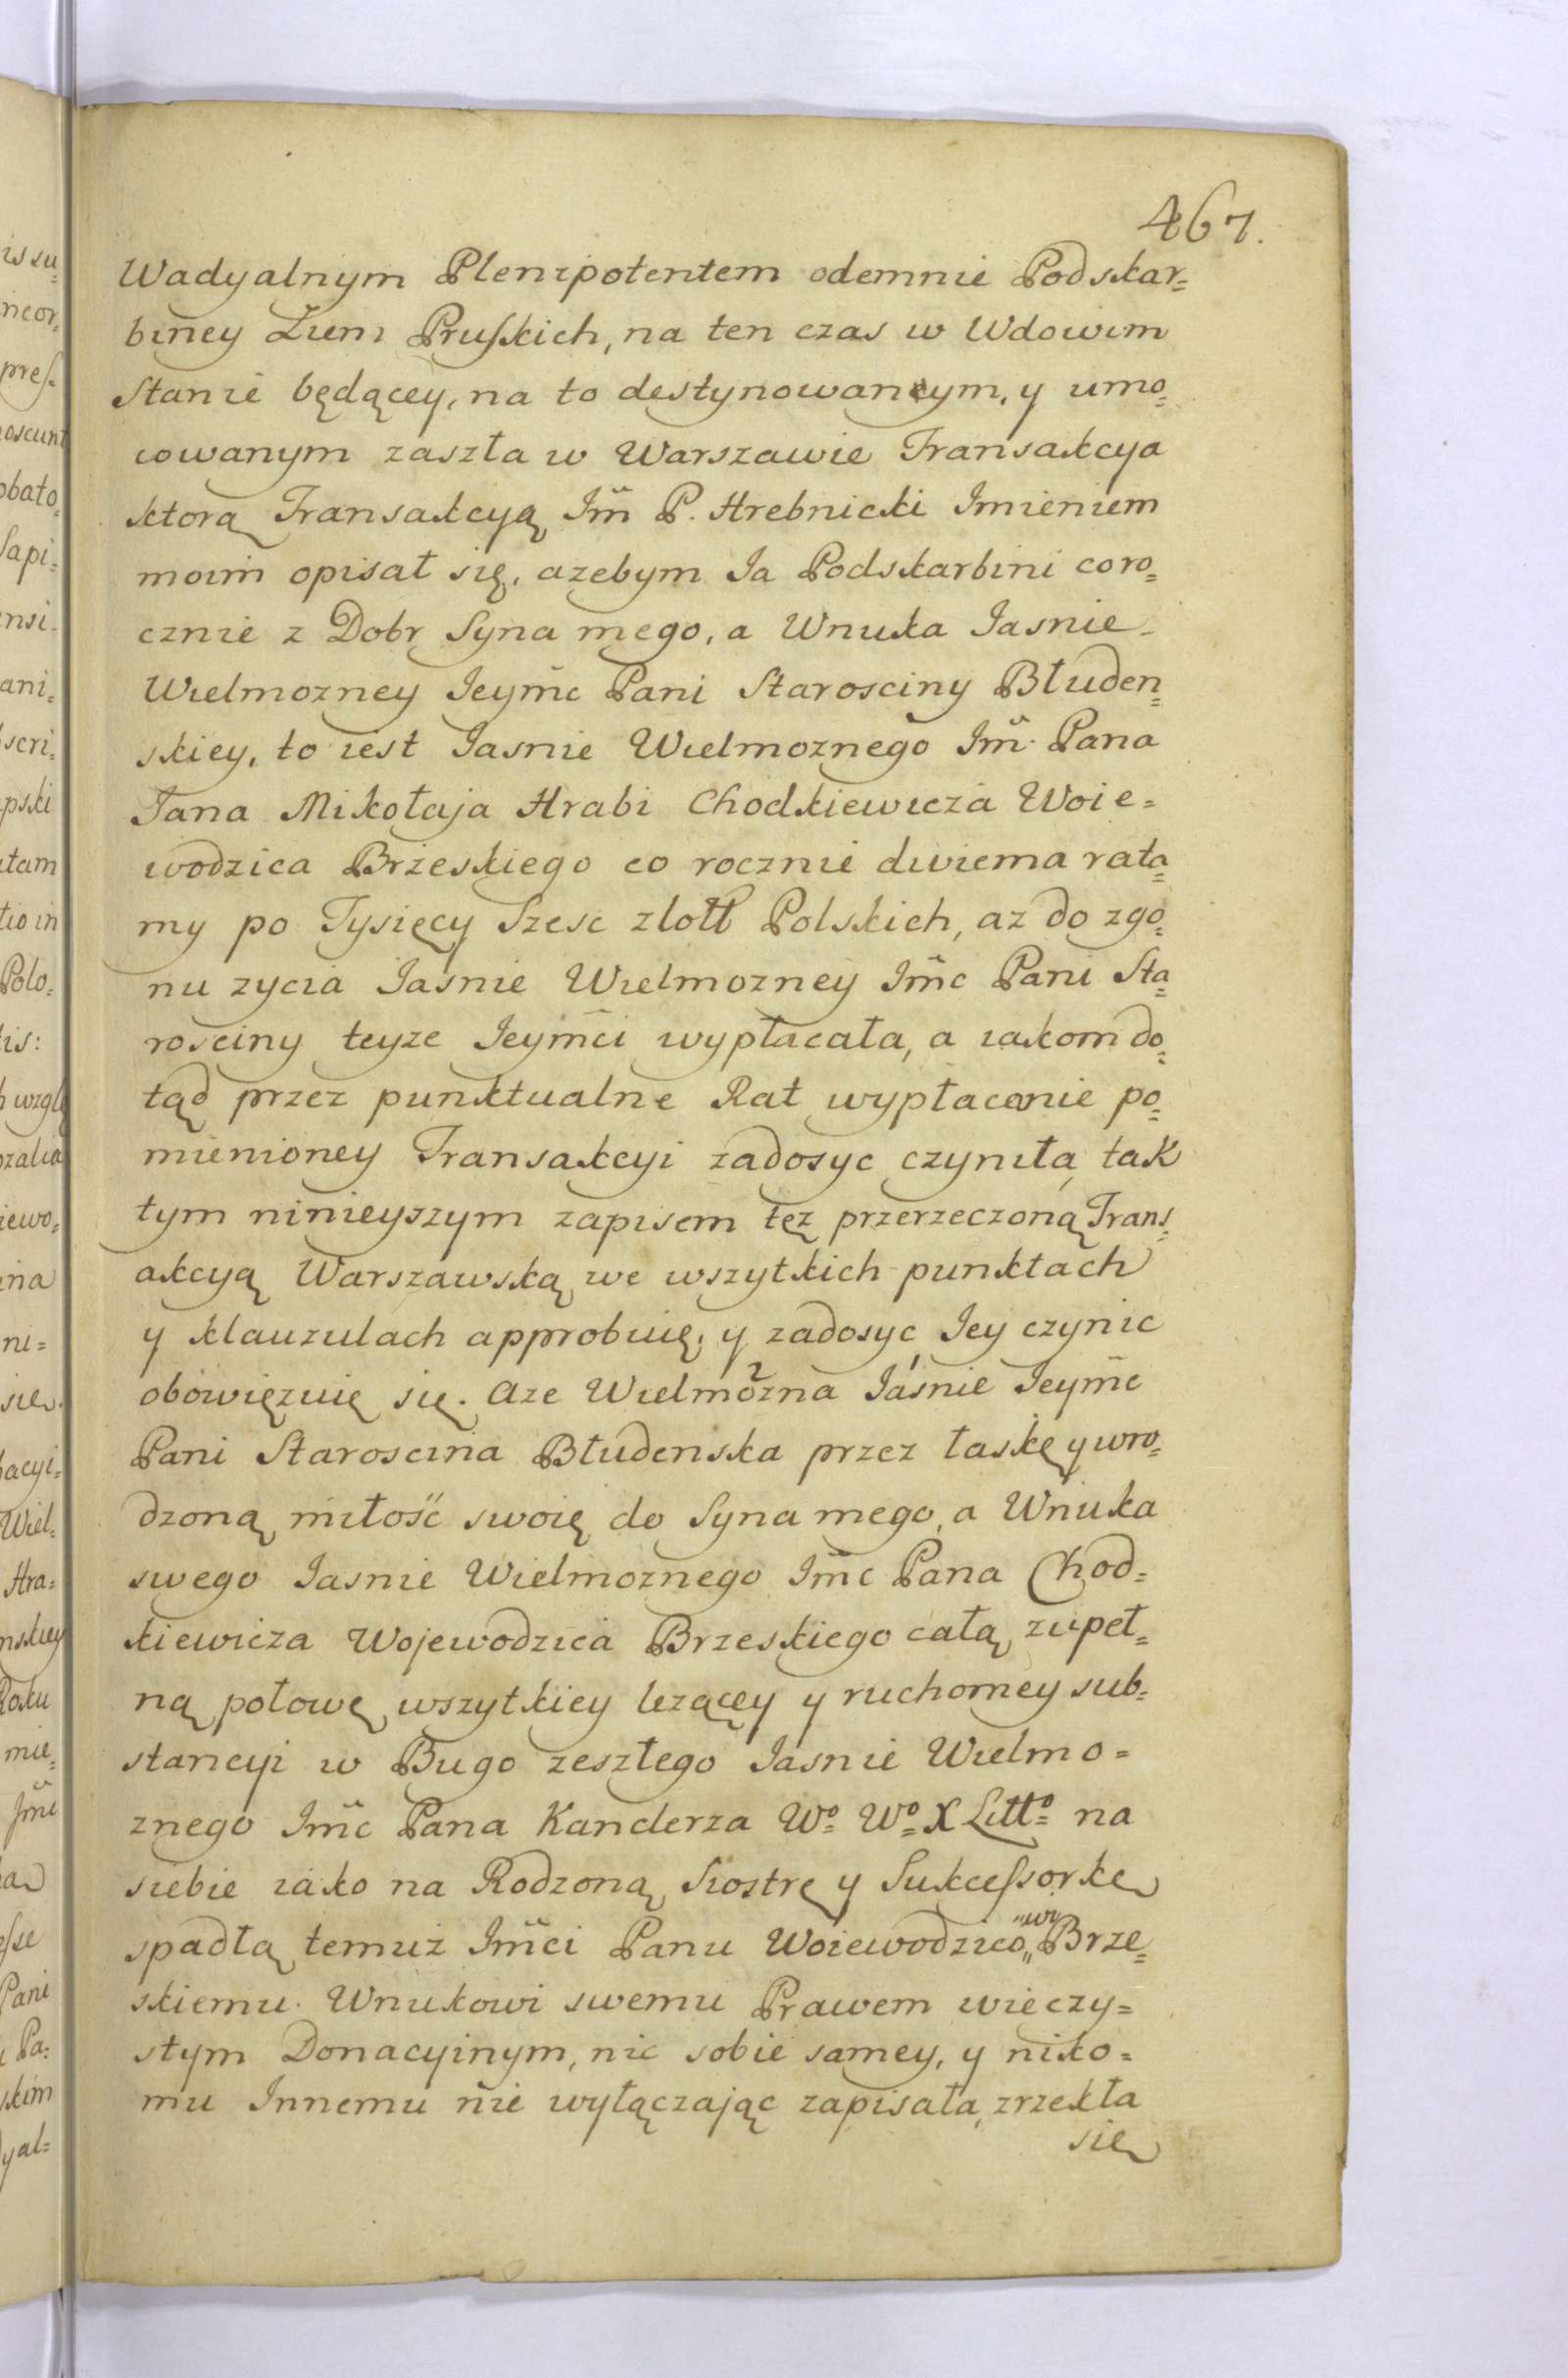 467.
Wadyalnym Plenipotentem odemnie Podskar=
biney Ziem Pruskich, na ten czas w Wdowim
Stanie będącey, na to destynowanym, y umo=
cowanym zaszła w Warszawie Transakcya
ktorą Transakcyą Im̃ P. Hrebnicki Imieniem
moim opisał się, azebym Ja Podskarbini coro=
cznie z Dobr Syna mego, a Wnuka Jasnie
Wielmozney Jeym̃c Pani Starosciny Błuden=
skiey, to iest Jasnie Wielmoznego Im̃ Pana
Jana Mikołaja Hrabi Chodkiewicza Woie=
wodzica Brzeskiego co rocznie dwiema rata=
my po Tysięcy Szesc złotł Polskich, az do zgo=
nu zycia Jasnie Wielmozney Im̃c Pani Sta=
rosciny teyze Jeym̃ci wypłacała, a iakom do=
tąd przez punktualne Rat wypłacanie po=
mienioney Transakcyi zadosyc czyniła, tak
tym ninieyszym zapisem tęz przerzeczoną Trans=
akcyą Warszawską we wszytkich punktach
y klauzulach approbuię, y zadosyc Jey czynic
obowięzuię się. Aze Wielmozna 2 Jaśnie 1 Jeym̃c
Pani Staroscina Błudenska przez łaskę y wro=
dzoną miłość swoię do Syna mego, a Wnuka
swego Jasnie Wielmoznego Im̃c Pana Chod=
kiewicza Wojewodzica Brzeskiego całą zupeł=
ną połowę wszytkiey lezącey y ruchomey sub=
stancyi w Bugo zeszłego Jasnie Wielmo=
znego Im̃c Pana Kanclerza Wº Wº X Littº na
siebie iako na Rodzoną Siostrę y Sukcessorkę
spadłą temuz Im̃ci Panu Woiewodzico„wi Brze=
skiemu Wnukowi swemu Prawem wieczy=
stym Donacyinym, nic sobie samey, y niko=
mu Innemu nie wyłączając zapisała, zrzekła
się